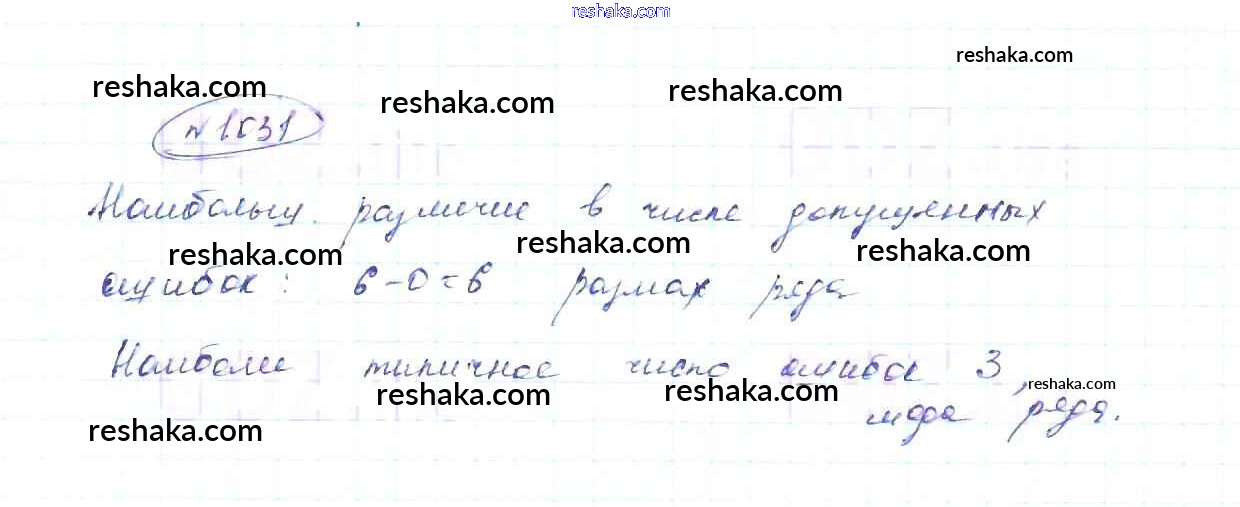 reshaka.com
reshaka.com
reshaka.com reshaka.com reshaka.com
№1031
Наибольш. различие в числе допущенных
reshaka.com reshaka.com reshaka.com
ошибок: 6-0=6 размах ряда
Наиболее типичное число ошибок 3,
reshaka.com reshaka.com reshaka.com
мода ряда.
reshaka.com